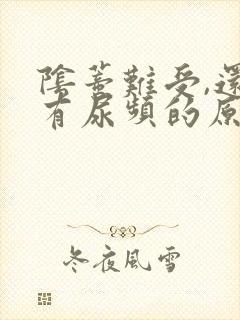 陰蒂難受,還
有尿頻的原
冬夜風雪